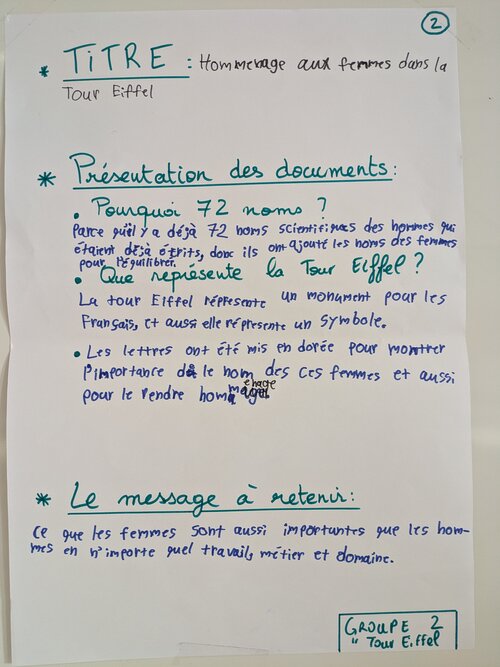 2
* TITRE : Hommenage aux femmes dans la
Tour Eiffel
* Présentation des documents :
• Pourquoi 72 noms ?
Parce qu'il y a déjà 72 noms scientifiques des hommes qui
étaient déjà écrits, donc ils ont ajouté les noms des femmes
pour l'équilibrer.
• Que représente la Tour Eiffel ?
La tour Eiffel répresente un monument pour les
Français, et aussi elle répresente un symbole.
• Les lettres ont été mis en dorée pour montrer
l'importance de le nom des ces femmes et aussi
pour le rendre hommage
* Le message à retenir :
Ce que les femmes sont aussi importantes que les hom-
mes en n'importe quel travail, métier et domaine.
GROUPE 2
"Tour Eiffel